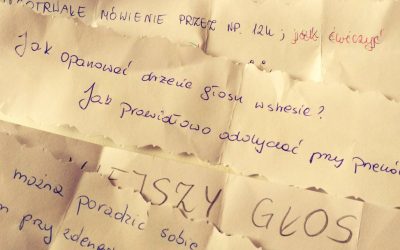 TRWAŁE MÓWIENIE PRZEZ NP. 12h; jak ćwiczyć
Jak opanować drżenie głosu w stresie?
Jak prawidłowo oddychać przy
EJSZY GŁOS
można poradzić sobie
przy